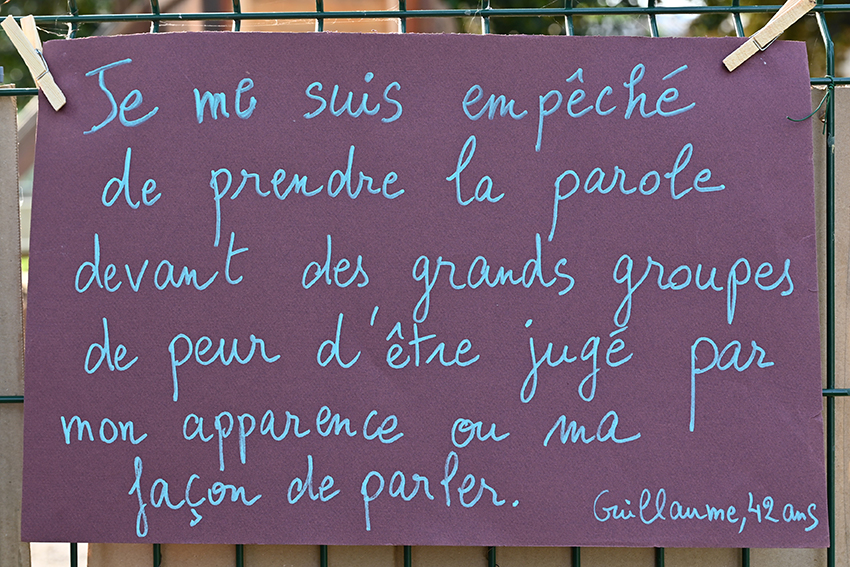 Je me suis empêché
de prendre la parole
devant des grands groupes
de peur d'être jugé par
mon apparence ou ma
façon de parler.
Guillaume, 42 ans